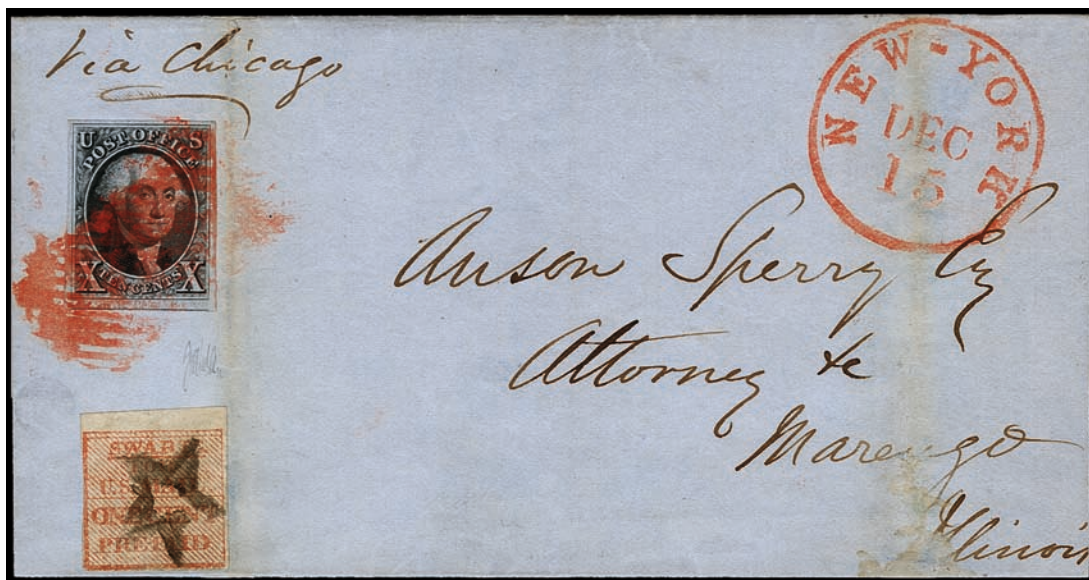 Via Chicago
U S
POST OFFICE
X TEN CENTS X
NEW-YORK
DEC
15
Anson Sperry Esq
Attorney &c
Marengo
Illinois
PREPAID